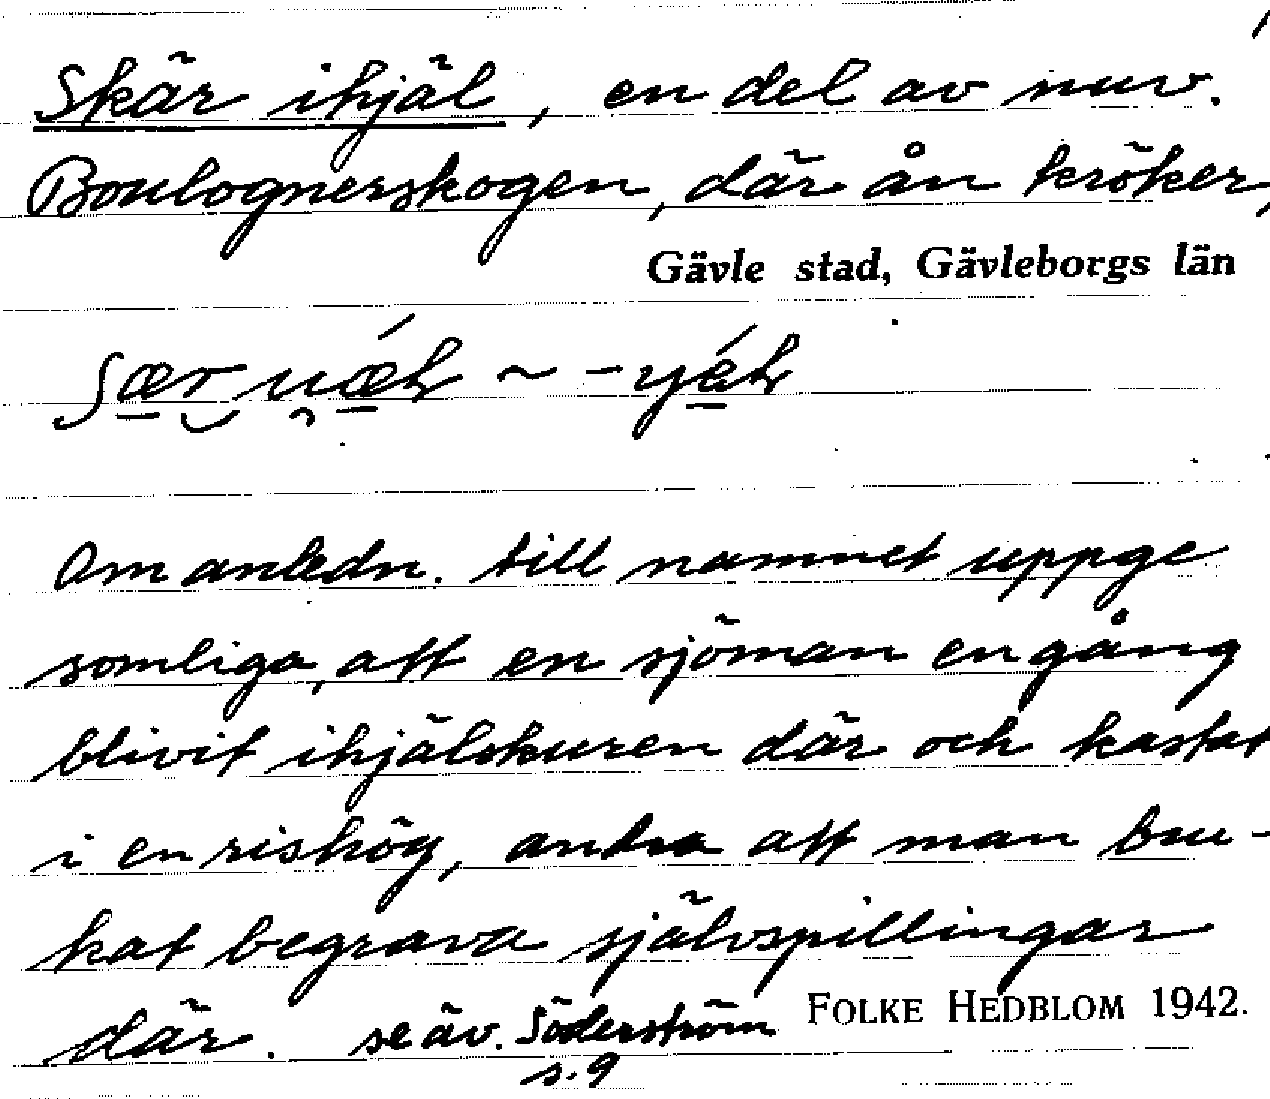 Skär ihjäl, en del av nuv.
Boulognerskogen, där ån kröker,
Gävle stad, Gävleborgs län
Om anledn. till namnet uppge
somliga, att en sjöman en gång
blivit ihjälskuren där och kastat
i en rishög, andra att man bru-
kat begrava självspillingar
där. se äv. Söderström
s. 9
FOLKE HEDBLOM 1942.